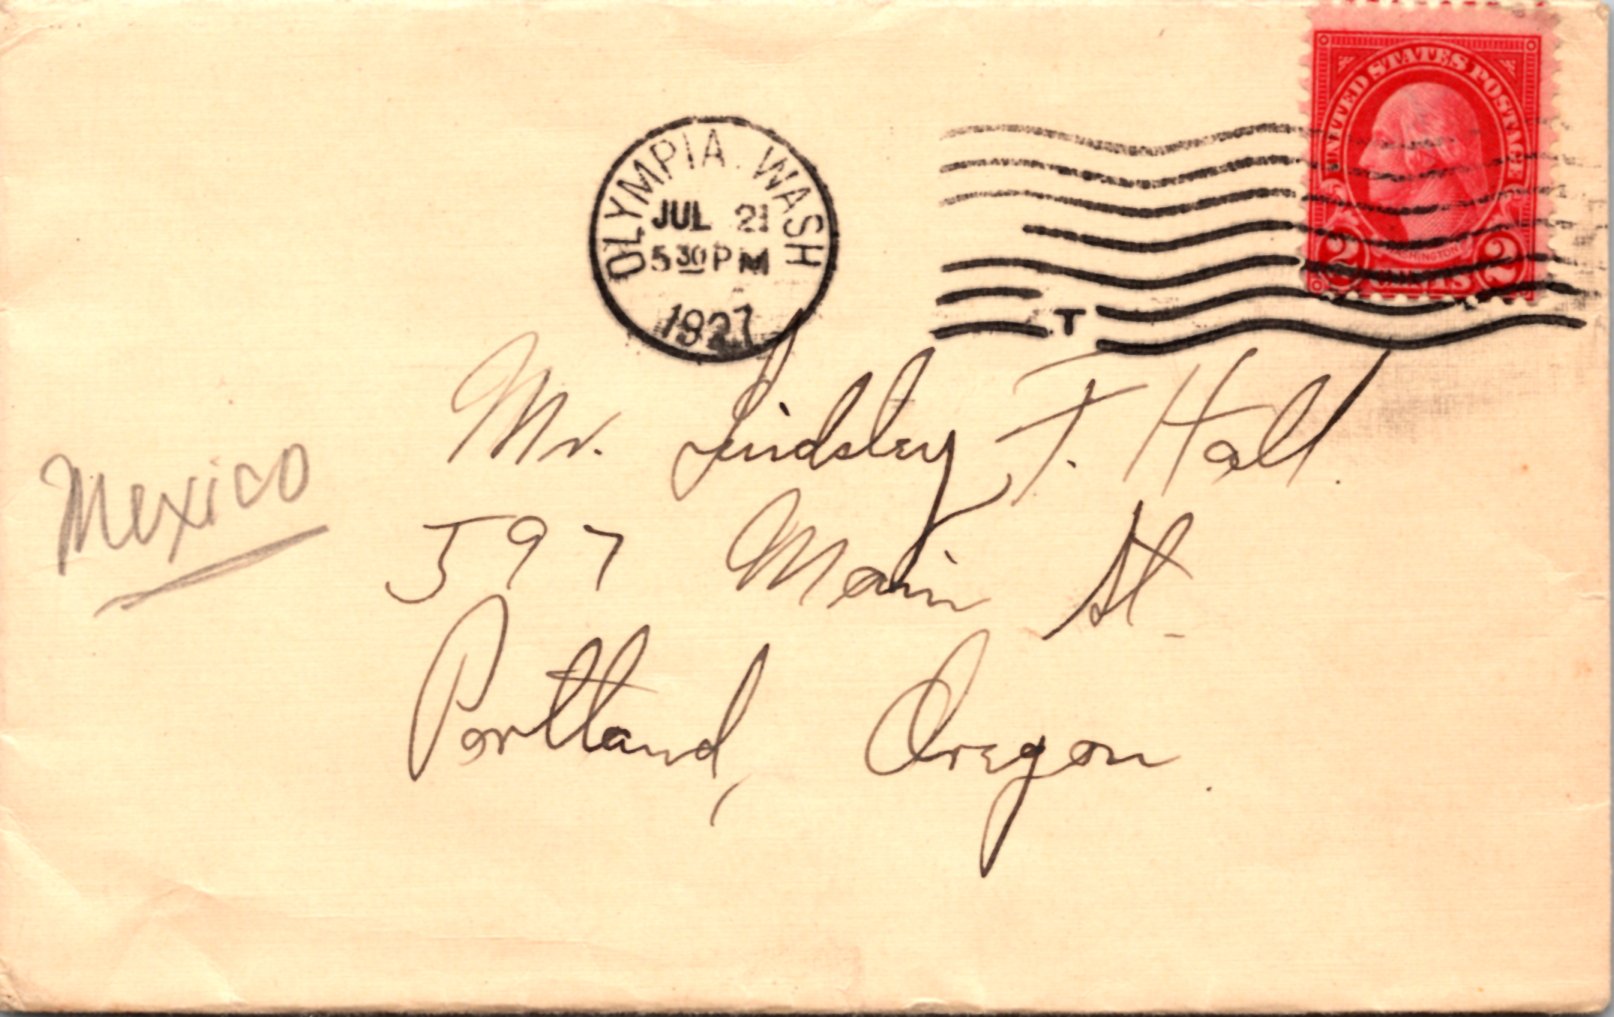 UNITED STATES POSTAGE
WASHINGTON
2 CENTS 2
OLYMPIA. WASH
JUL 21
5 30 PM
1927
T
Mr. Lindsley F. Hall.
597 Main St.
Portland, Oregon.
Mexico